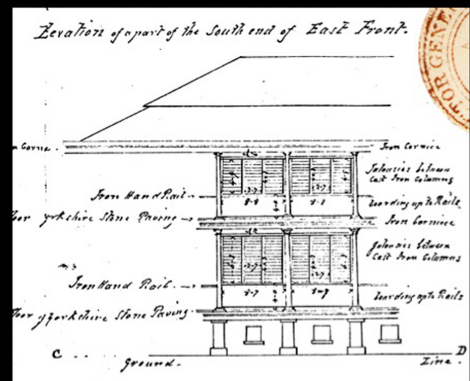 Elevation of a part of the South end of East Front.
TOR GENE
n Cornice.
Iron Cornice
Jalousies between
Cast Iron Columns
Iron Hand Rail.
boarding up to Rails
oor yorkshire Stone Paving
Iron Cornice
Jalousies between
Cast Iron Columns
Iron Hand Rail.
boarding up to Rails
oor yorkshire Stone Paving
C
Ground.
Line.
D